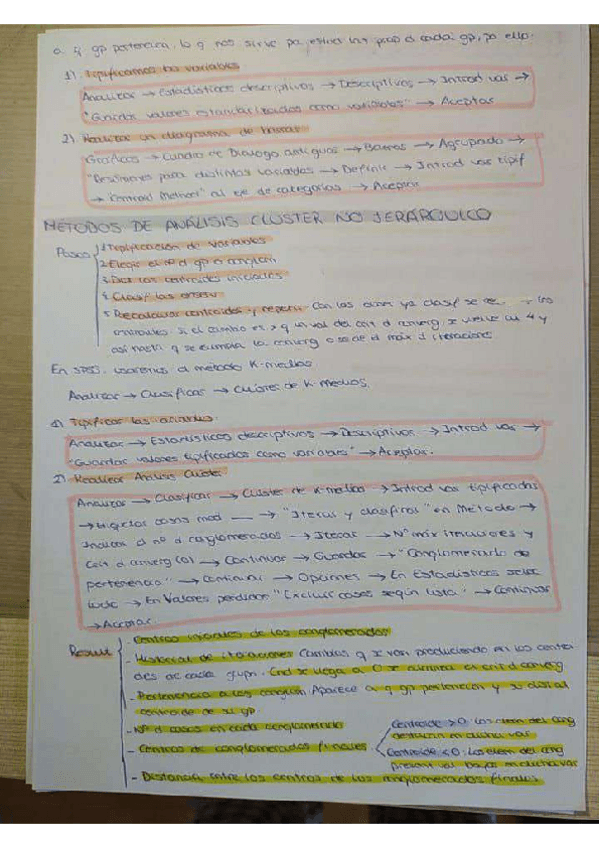 a q gp pertenecen, lo q nos sirve pa estimar las prop d cada gp, pa ello:
1) Tipificamos las variables
Analizar → Estadísticos descriptivos → Descriptivos → Introd vas →
"Guardar valores estandarizados como variables" → Aceptar
2) Realizar un diagrama de barras
Gráficos → Cuadros de Diálogo antiguos → Barras → Agrupado →
"Resúmenes para distintas variables → Definir → Introd vas tipif
→ al eje de categorías → Aceptar
MÉTODOS DE ANÁLISIS CLUSTER NO JERÁRQUICO
Pasos 1. Tipificación de variables
2. Elegir el nº d gp o conglom
3. los centroides iniciales
4. Clasif las observ
5. Recalcular centroides y repetir. Con las ya clasif se
centroides. Si el cambio es > q un val del crit d converg, se vuelve al 4 y
así hasta q se cumpla la converg o se dé el máx d iteraciones
En SPSS, usaremos el método K-medias.
Analizar → Clasificar → Clúster de K-medias.
1) Tipificar las variables.
Analizar → Estadísticos descriptivos → Descriptivos → Introd vas →
"Guardar valores tipificados como variables" → Aceptar.
2) Realizar Análisis Cluster
Analizar → Clasificar → Clúster de K-medias → Introd vas tipificadas
→ → "Iterar y clasificar" en Método →
Indicar el nº d conglomerados → Iterar → Nº máx iteraciones y
Crit d converg (0) → Continuar → Guardar → "Conglomerado de
pertenencia" → Continuar → Opciones → En Estadísticos selec
→ En Valores perdidos "Excluir casos según lista" → Continuar
→ Aceptar.
Result - Centros iniciales de los conglomerados.
- Historial de iteraciones Cambios q se van produciendo en los centroi
des de cada grupo. Cnd se llega a 0 se el crit d converg
- Pertenencia a los conglom Aparece a q gp pertenecen y su dist al
centroide de su gp
- Nº d casos en cada conglomerado
- Centros de conglomerados finales Centroide > 0: Los elem del cong
en dicha vas
Centroide < 0: Los elem del cong
en dicha vas
- Distancia entre los centros de los conglomerados finales